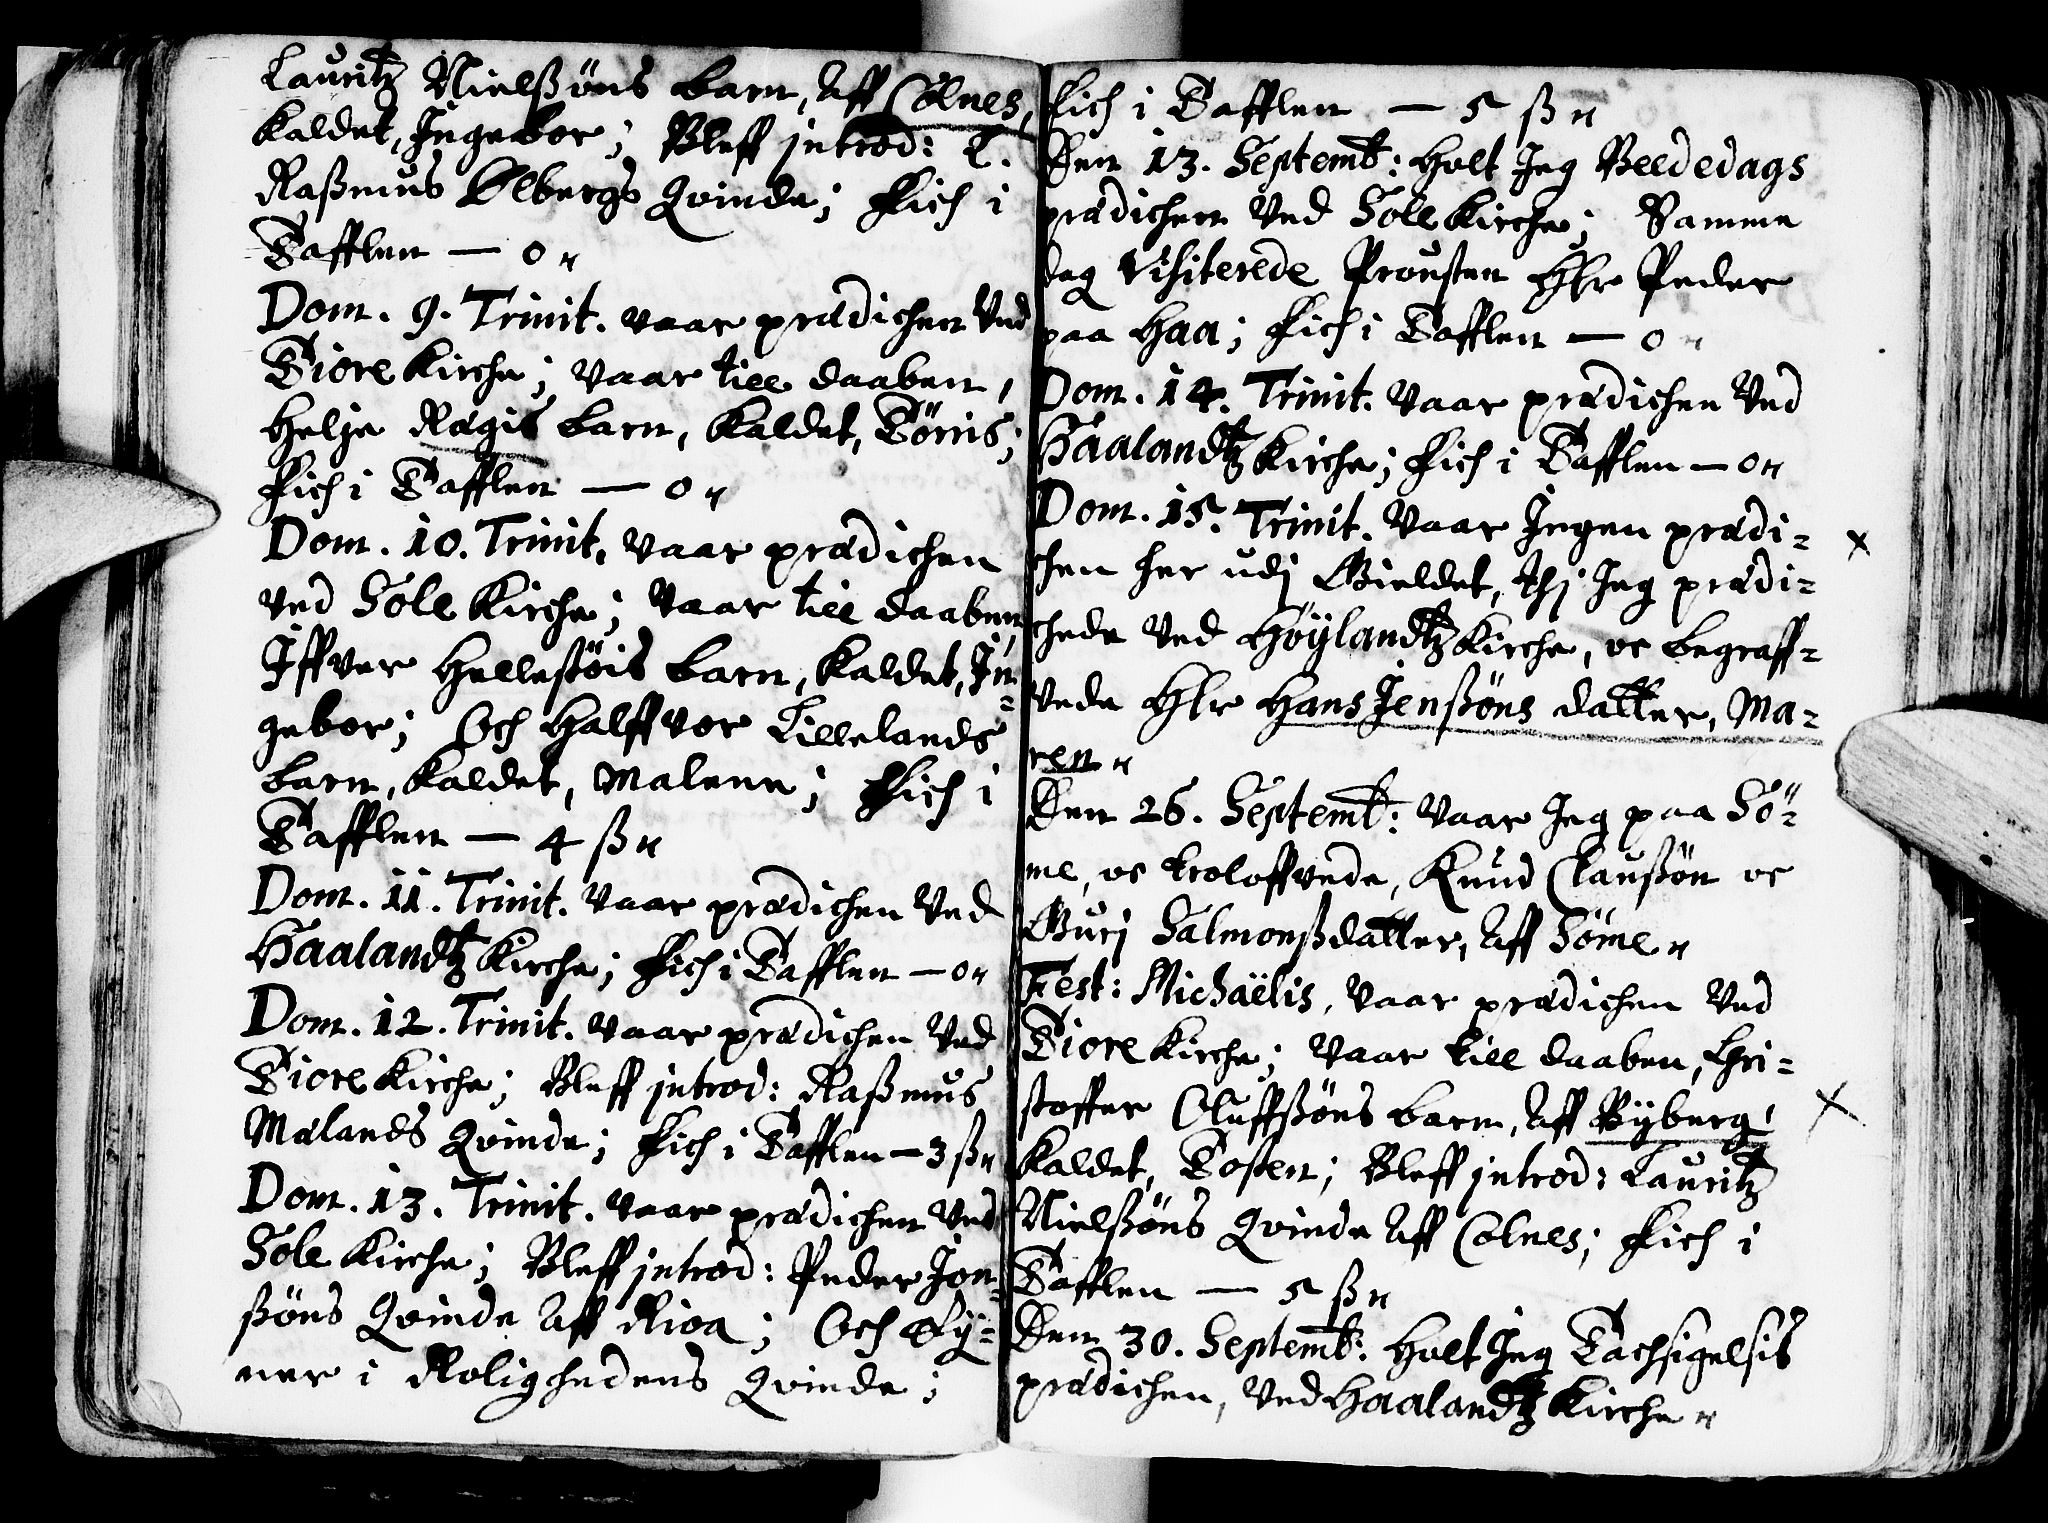 Lauritz Nielßöns barn, Aff Colnes,
kaldet, Ingebor; Bleff introd: T.
Raßmus Ølbergs Qvinde; Fich i
Tafflen — 0 "
Dom. 9. Trinit. vaar prædichen Ved
Tiore Kirche; vaar till daaben,
Helje Rægis barn, kaldet, Törris;
Fich i Tafflen — 0 "
Dom. 10. Trinit. vaar prædichen
ved Sole Kirche; vaar till daaben,
Iffver Hellestöis barn, kaldet, In-
gebor; Och Halffvor Lillelands
barn, kaldet, Malene; Fich i
Tafflen — 4 ß "
Dom. 11. Trinit. vaar prædichen Ved
Haalandtz Kirche; Fich i Tafflen — 0 "
Dom. 12. Trinit. vaar prædichen Ved
Tiore Kirche; Bleff introd: Raßmus
Mælands Qvinde; Fich i Tafflen — 3 ß "
Dom. 13. Trinit. vaar prædichen Ved
Sole Kirche; Bleff introd: Peder Jon-
ßöns Qvinde Aff Risa; Och Ey-
ner i Rolighedens Qvinde;
Fich i Tafflen — 5 ß "
Den 13. Septemb: Holt Jeg Beededags
prædichen Ved Sole Kirche; Samme
dag Visiterede Prousten Hlr Peder
paa Haa; Fich i Tafflen — 0 "
Dom. 14. Trinit. vaar prædichen Ved
Haalandtz Kirche; Fich i Tafflen — 0 "
Dom. 15. Trinit. vaar Ingen prædi-
chen her udj Gieldet, thj Jeg prædi-
chede Ved Höylandtz Kirche, oc begraff-
vede Hlr Hans Jenßöns datter, Ma-
ren "
Den 26. Septemb: vaar Jeg paa Sö-
me, oc troloffvede, Knud Claußön oc
Gurj Salmonßdatter, Aff Söme "
Fest: Michaëlis, vaar prædichen Ved
Tiore Kirche; vaar till daaben, Chri-
stoffer Oluffßöns barn, Aff Byberg,
kaldet, Tosten; Bleff introd: Lauritz
Nielßöns Qvinde Aff Colnes; Fich i
Tafflen — 5 ß "
Den 30. Septemb: Holt Jeg Tachsigelsis
prædichen, Ved Haalandtz Kirche "